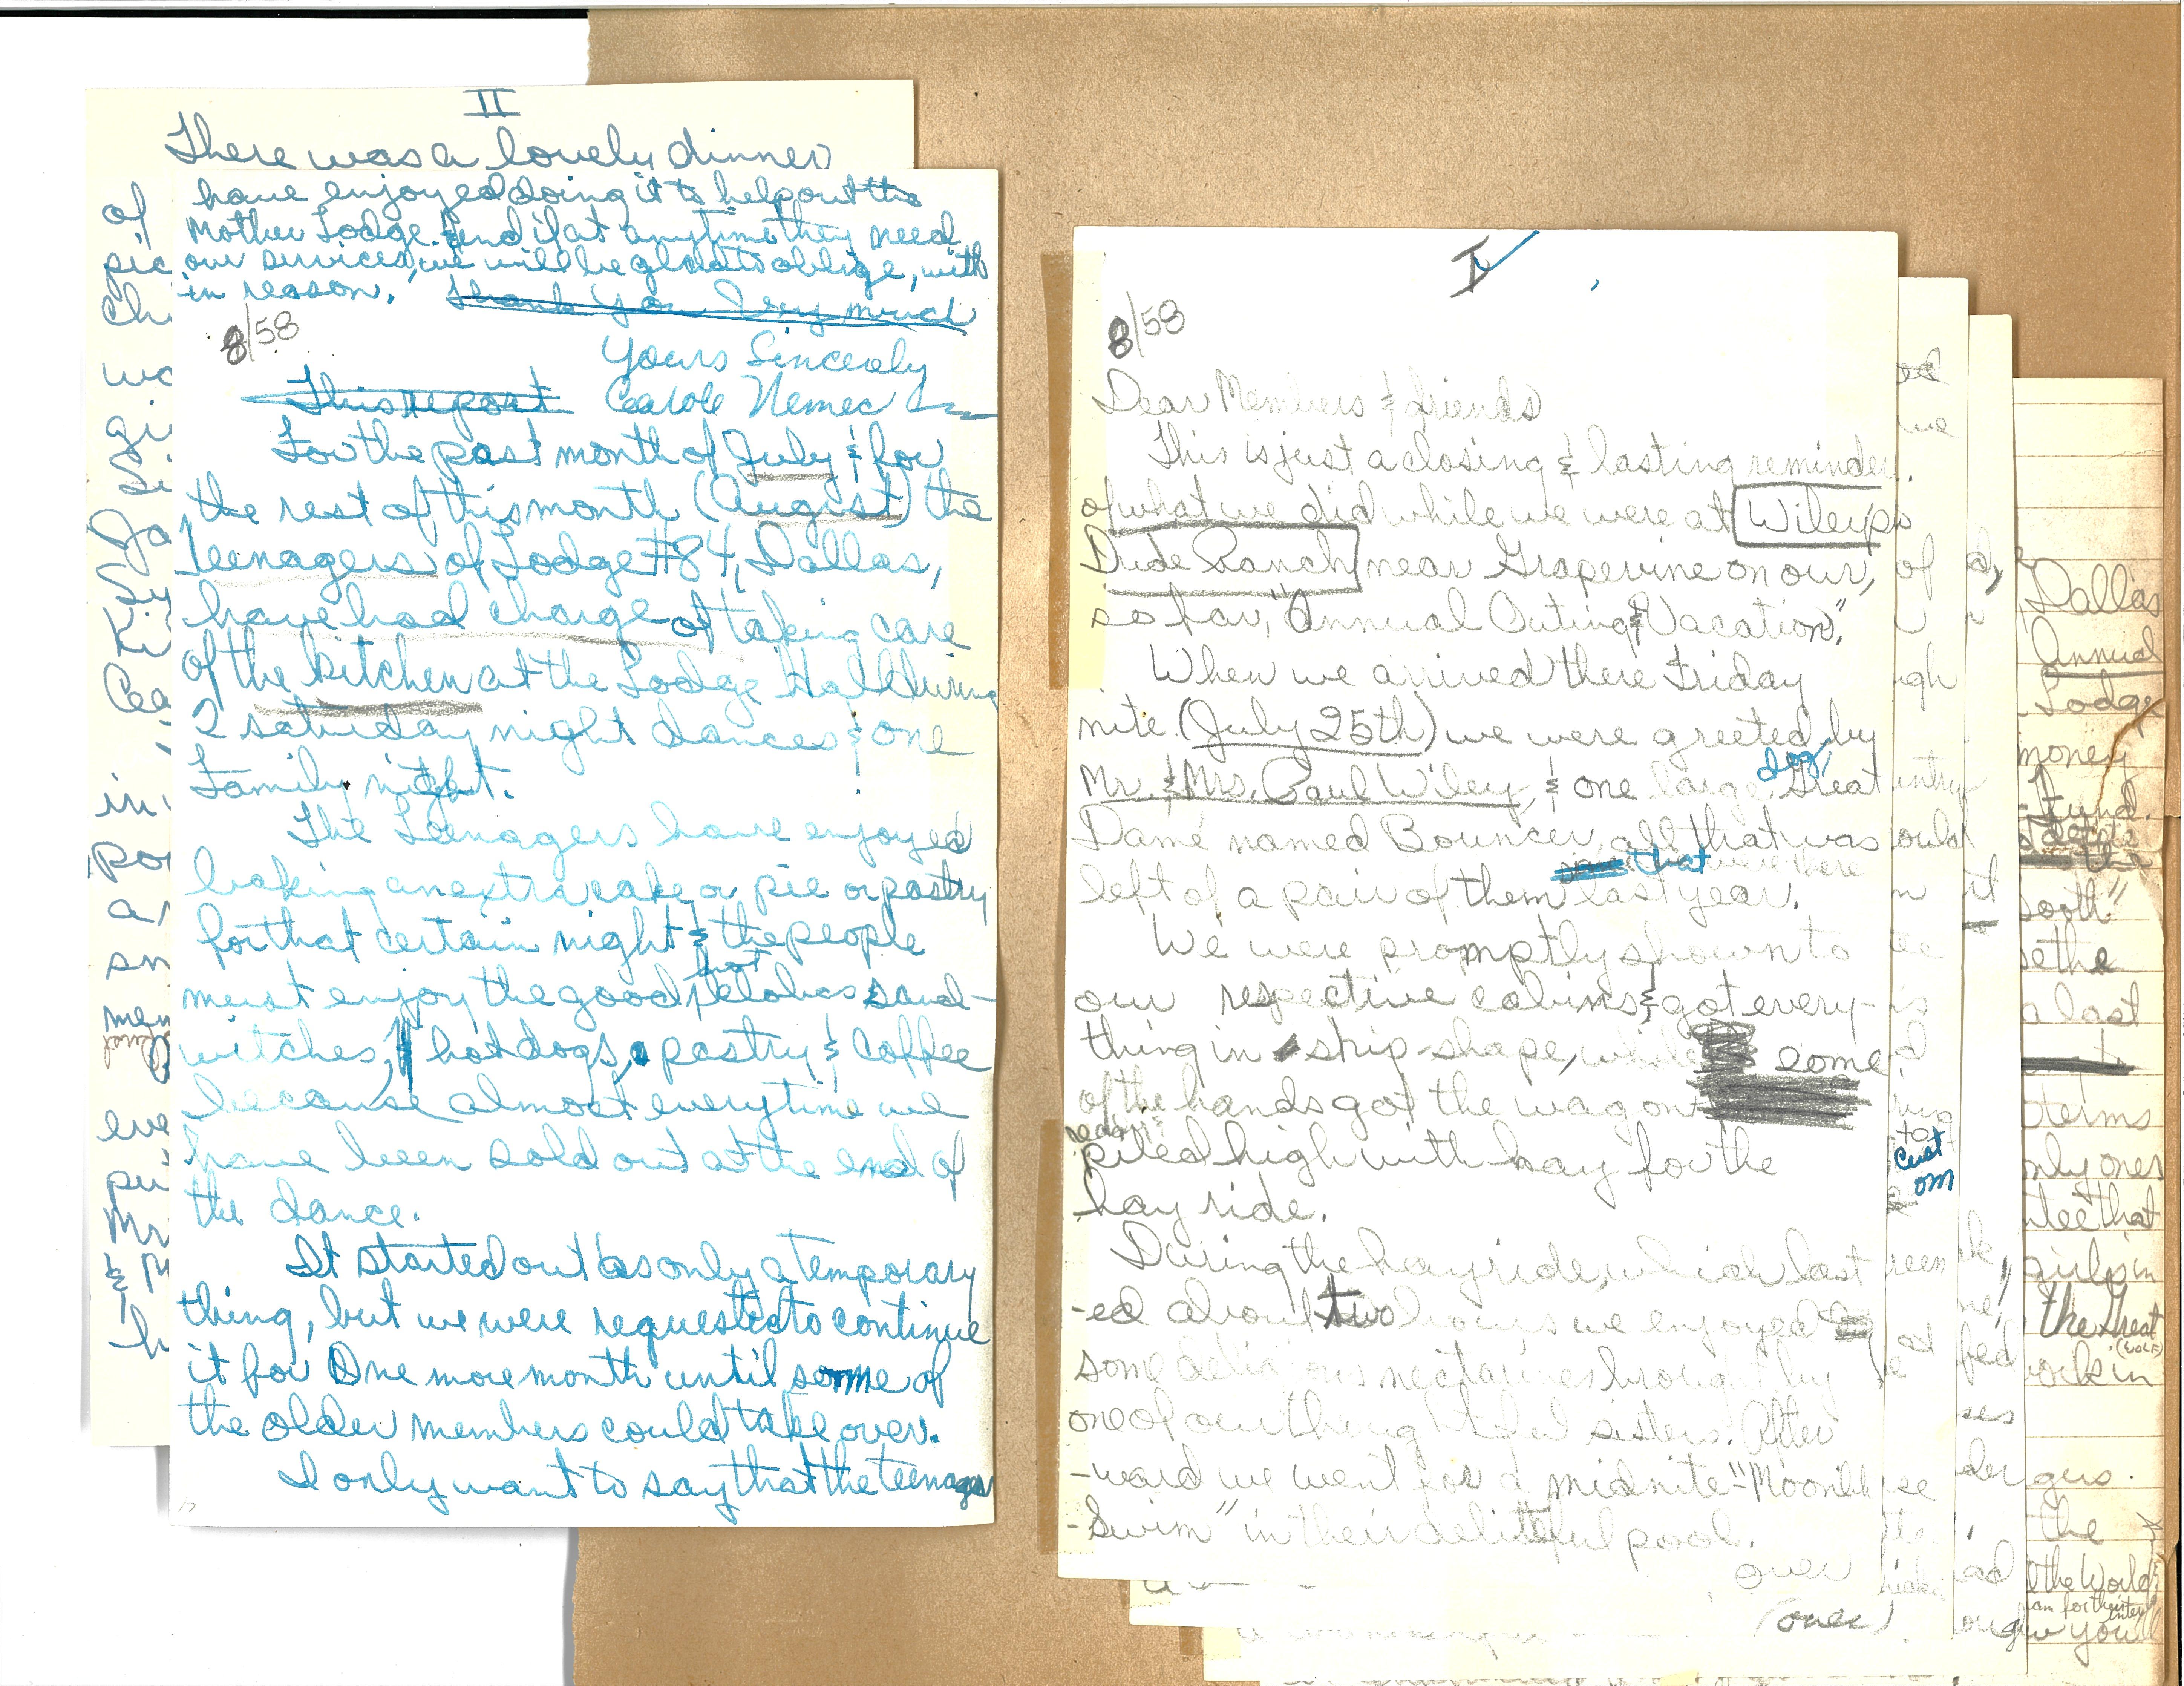 II
There was a lovely dinner
have enjoyed doing it to help out the
Mother Lodge. And if at anytime they need
our services, we will be glad to oblige, with
in reason.
Thank you Very much
8/58
Yours Sincealy
This report
Carole Nemec
For the past month of July & for
the rest of this month (August) the
Teenagers of Lodge #84, Dallas,
have had charge of taking care
of the kitchen at the Lodge Hall during
2 saturday night dances & one
Family night.
The Teenagers have enjoyed
baking an extra cake or pie or pastry
for that certain night & the people
must enjoy the good hot sand-
witches, hotdogs, pastry & coffee
because almost everytime we
have been sold out at the end of
the dance.
It started out as only a temporary
thing, but we were requested to continue
it for One more month until some of
the older members could take over.
I only want to say that the teenager
of
pic
chi
wo
gi
Se
Jo
Sy
Ki
Cea
in
por
a
sn
men
eve
pu
Mr
& M
h
I
8/58
Dear Members & friends
This is just a closing & lasting reminder
of what we did while we were at Wiley's
Dude Ranch near Grapevine on our,
so far, "Annual Outing & Vacation".
When we arrived there Friday
nite (July 25th) we were greeted by
Mr. & Mrs. Paul Wiley, & one large dog Great
Dame named Bouncer, all that was
that were there
left of a pair of them last year.
We were promptly shown to
our respective cabins & got every-
thing in ship-shape, while some
of the hands got the wagon
ready &
piled high with hay for the
hay ride.
During the hayride, which last
-ed about two hours we enjoyed
some delicious nectarines brought by
one of our thoughtful sisters. After
-ward we went for a midnite "Moonlite
-Swim" in their deliteful pool.
over
(over)
ed
we
of
igh
ould
Cust
om
d,
it
fed
Dallas
Annual
Lodge
money
Fund.
the
booth"
se the
a last
terms
only ones
girls in
the Great
work in
the
the World
you